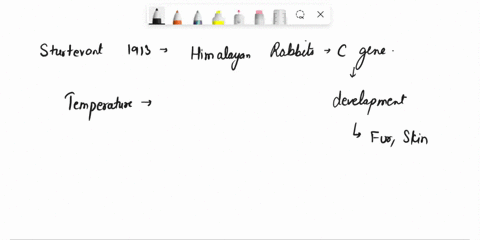 Sturtevant 1913 → Himalayan Rabbits → C gene.
↓
Temperature → development
↳ Fur, Skin